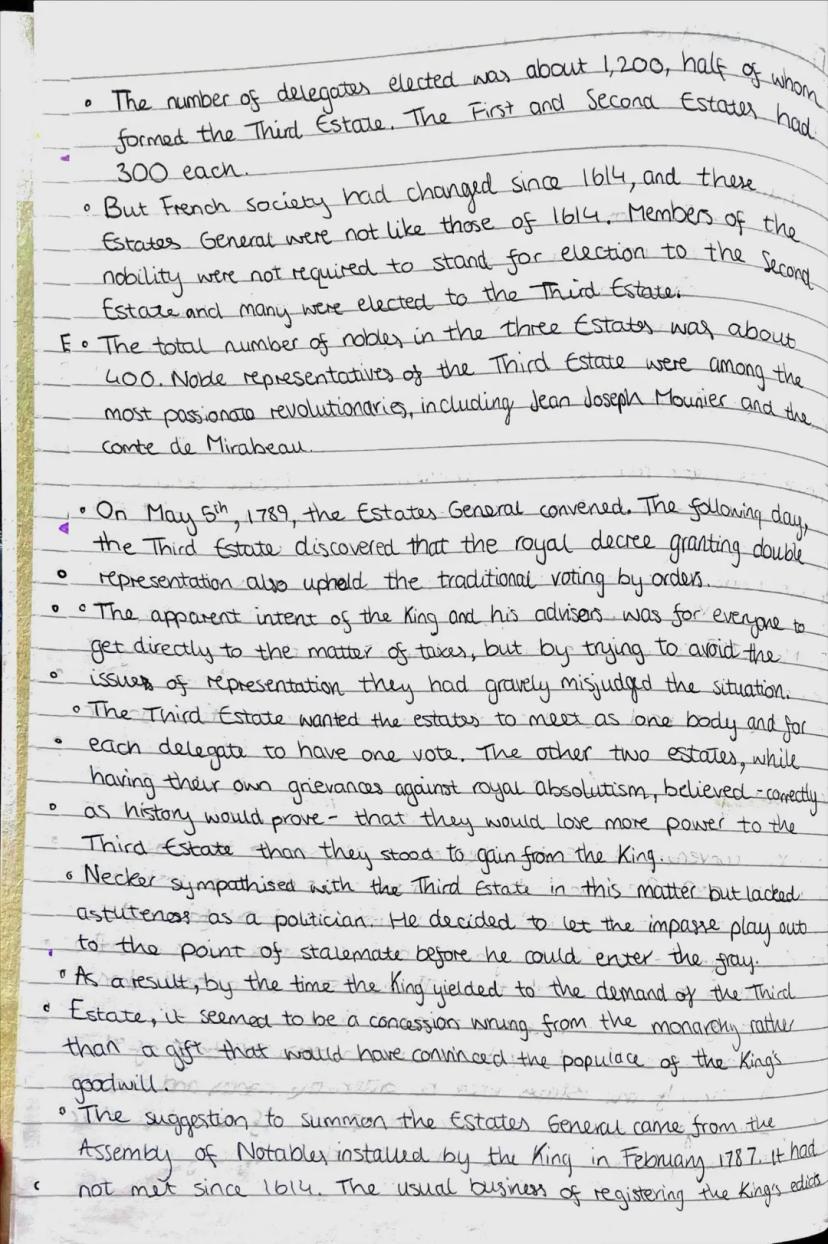 • The number of delegates elected was about 1,200, half of whom
formed the Third Estate. The First and Second Estates had
300 each.
• But French society had changed since 1614, and these
Estates General were not like those of 1614. Members of the
nobility were not required to stand for election to the Second
Estate and many were elected to the Third Estate.
E • The total number of nobles in the three Estates was about
400. Noble representatives of the Third Estate were among the
most passionate revolutionaries, including Jean Joseph Mounier and the
comte de Mirabeau.
• On May 5th, 1789, the Estates General convened. The following day,
the Third Estate discovered that the royal decree granting double
representation also upheld the traditional voting by orders.
• The apparent intent of the King and his advisers was for everyone to
get directly to the matter of taxes, but by trying to avoid the
issues of representation they had gravely misjudged the situation.
• The Third Estate wanted the estates to meet as one body and for
each delegate to have one vote. The other two estates, while
having their own grievances against royal absolutism, believed - correctly
as history would prove - that they would lose more power to the
Third Estate than they stood to gain from the King.
• Necker sympathised with the Third Estate in this matter but lacked
astuteness as a politician. He decided to let the impasse play out
to the point of stalemate before he could enter the fray.
• As a result, by the time the King yielded to the demand of the Third
Estate, it seemed to be a concession wrung from the monarchy rather
than a gift that would have convinced the populace of the King's
goodwill.
• The suggestion to summon the Estates General came from the
Assembly of Notables installed by the King in February 1787. It had
not met since 1614. The usual business of registering the King's edicts